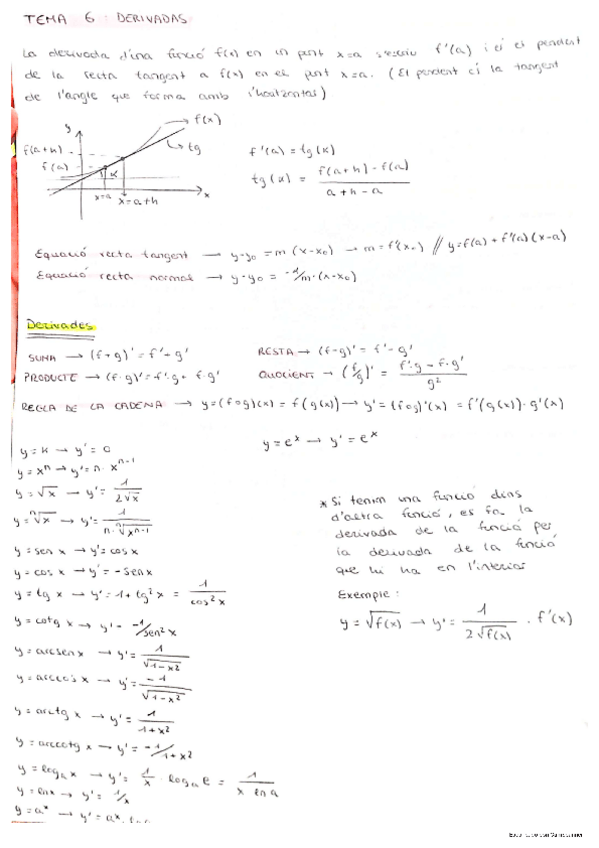 TEMA 6 : DERIVADAS
La derivada d'una funció f(x) en un punt x=a s'escriu f'(a) i és el pendent
de la recta tangent a f(x) en el punt x=a. (El pendent és la tangent
de l'angle que forma amb l'horitzontal)
y
f(x)
tg
f(a+h)
f(a)
α
x=a
x=a+h
x
f'(a) = tg(α)
tg(α) = f(a+h) - f(a) / a+h-a
Equació recta tangent → y-y₀ = m(x-x₀) → m=f'(x₀) // y=f(a)+f'(a)(x-a)
Equació recta normal → y-y₀ = -1/m·(x-x₀)
Derivades
SUMA → (f+g)' = f'+g'
RESTA → (f-g)' = f'-g'
PRODUCTE → (f·g)' = f'·g + f·g'
QUOCIENT → (f/g)' = f'·g - f·g' / g²
REGLA DE LA CADENA → y=(f∘g)(x) = f(g(x)) → y'=(f∘g)'(x) = f'(g(x))·g'(x)
y=k → y'=0
y=eˣ → y'=eˣ
y=xⁿ → y'=n·xⁿ⁻¹
y=√x → y'= 1/2√x
y=ⁿ√x → y'= 1/n·ⁿ√xⁿ⁻¹
y=sen x → y'=cos x
y=cos x → y'=-sen x
y=tg x → y'=1+tg²x = 1/cos²x
y=cotg x → y'=-1/sen²x
y=arcsen x → y'= 1/√1-x²
y=arccos x → y'= -1/√1-x²
y=arctg x → y'= 1/1+x²
y=arccotg x → y'=-1/1+x²
y=logₐx → y'= 1/x · logₐe = 1/x ln a
y=lnx → y'=1/x
y=aˣ → y'=aˣ·
* Si tenim una funció dins
d'altra funció, es fa la
derivada de la funció per
la derivada de la funció
que hi ha en l'interior
Exemple:
y=√f(x) → y'= 1/2√f(x) · f'(x)